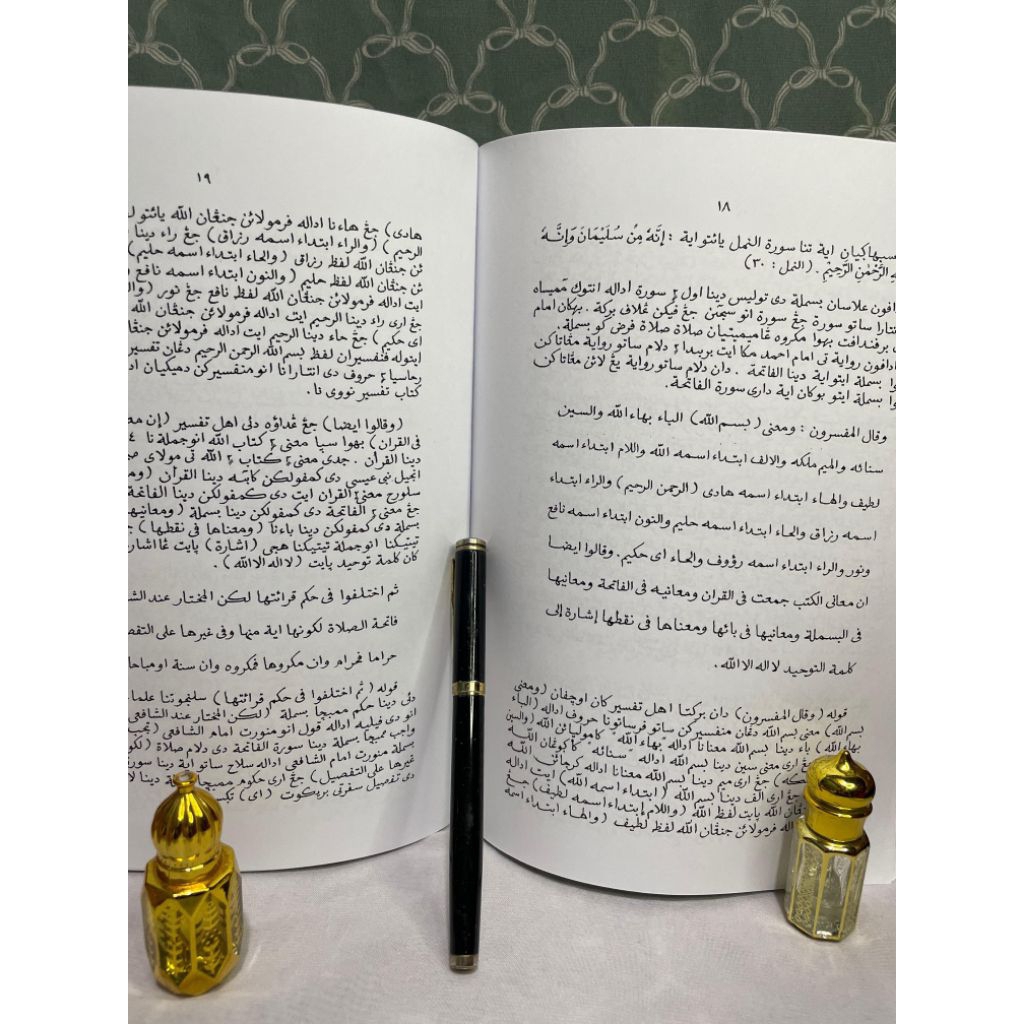 ١٨
سبهاكيان اية تنا سورة النمل يائتو اية : إِنَّهُ مِنْ سُلَيْمَانَ وَإِنَّهُ
الرَّحْمٰنِ الرَّحِيْمِ . (النمل : ٣٠)
افون علاسان بسملة دى توليس دينا اول ٢ سورة اداله انتوك
نتارا ساتو سورة جڠ سورة انو بركة . بهكان امام
برفندافت بهوا مكروه صلاة صلاة فرض كو بسملة .
ادافون رواية تى امام احمد مكا ايت بربيدا ٢ دلام ساتو رواية مڠاتاكن
بسملة ايتو اية دينا الفاتحة . دان دلام ساتو رواية يڠ لائن مڠاتاكن
بسملة ايتو بوكان اية دارى سورة الفاتحة .
وقال المفسرون : ومعنى (بسم الله) الباء بهاء الله والسين
سنائه والميم ملكه والالف ابتداء اسمه الله واللام ابتداء اسمه
لطيف والهاء ابتداء اسمه هادى (الرحمن الرحيم) والراء ابتداء
اسمه رزاق والحاء ابتداء اسمه حليم والنون ابتداء اسمه نافع
ونور والراء ابتداء اسمه رؤوف والحاء اى حكيم . وقالوا ايضا
ان معانى الكتب جمعت فى القران ومعانيه فى الفاتحة ومعانيها
فى البسملة ومعانيها فى بائها ومعناها فى نقطها إشارة إلى
كلمة التوحيد لا اله الا الله .
قوله (وقال المفسرون) دان بركتا اهل تفسير كان اوچفان (ومعنى
بسم الله) معنى بسم الله دڠان منفسيركن ساتو فرساتونا حروف اداله (الباء
بهاء الله) باء دينا بسم الله معنانا اداله بهاء الله كاموليائن الله (والسين
جڠ ارى معنى سين دينا بسم الله اداله سنائه كاڬوڠان الله
جڠ ارى ميم دينا بسم الله معنانا اداله كرجائن الله
جڠ ارى الف دينا بسم الله (ابتداء اسمه الله) ايت اداله
الله يائت لفظ الله (واللام إبتداء اسمه لطيف) جڠ
اله فرمولائن جنڠان الله لفظ لطيف (والهاء ابتداء اسمه
١٩
هادى) جڠ هاء نا اداله فرمولائن جنڠان الله يائتو
الرحيم) (والراء ابتداء اسمه رزاق) جڠ راء دينا
ئن جنڠان الله لفظ رزاق (والحاء ابتداء اسمه حليم)
ئن جنڠان الله لفظ حليم (والنون ابتداء اسمه نافع
ايت اداله فرمولائن جنڠان الله لفظ نافع جڠ نور (والراء
جڠ ارى راء دينا الرحيم ايت اداله فرمولائن جنڠان الله
اى حكيم) جڠ حاء دينا الرحيم ايت اداله فرمولائن جنڠان
ايتوله فنفسيران لفظ بسم الله الرحمن الرحيم دڠان تفسير
رحاسيا ٢ حروف دى انتارانا انو منفسيركن دميكيان
كتاب تفسير نووى نا .
(وقالوا ايضا) جڠ دلى اهل تفسير (إن
فى القران) بهوا سبا معنى ٢ كتاب الله انو جملة نا
دينا القرآن . جدى معنى ٢ كتاب ٢ الله تى مولاى
انجيل نبى عيسى دى كمفولكن دينا القرآن
سلوره معنى ٢ القرآن ايت دى كمفولكن دينا الفاتحة
جڠ معنى ٢ الفاتحة دى كمفولكن دينا بسملة (ومعانيها
بسملة دى كمفولكن دينا باءنا (ومعناها فى نقطها)
تيتيكنا انو جملة تيتيكنا هجى (اشارة) يائت
كان كلمة توحيد يائت (لا اله الا الله) .
ثم اختلفوا فى حكم قرائتها لكن المختار عند
فاتحة الصلاة لكونها اية منها وفى غيرها على
حراما فحرام وان مكروها فمكروه وان سنة او مباحا
قوله (ثم اختلفوا فى حكم قرائتها) سلنجوتنا علما
دلى دينا حكم ممبچا بسملة (لكن المختار عند الشافعى
انو دى فيليه اداله قول انو منورت امام الشافعى
واجب ممبچا بسملة دينا سورة الفاتحة دى دلام صلاة
بسملة منورت امام الشافعى اداله سلاح ساتو اية دينا
غيرها على التفصيل) جڠ ارى حكوم ممبچا بسملة دينا
دى تفصيل سفرتى بريكوت (اى)